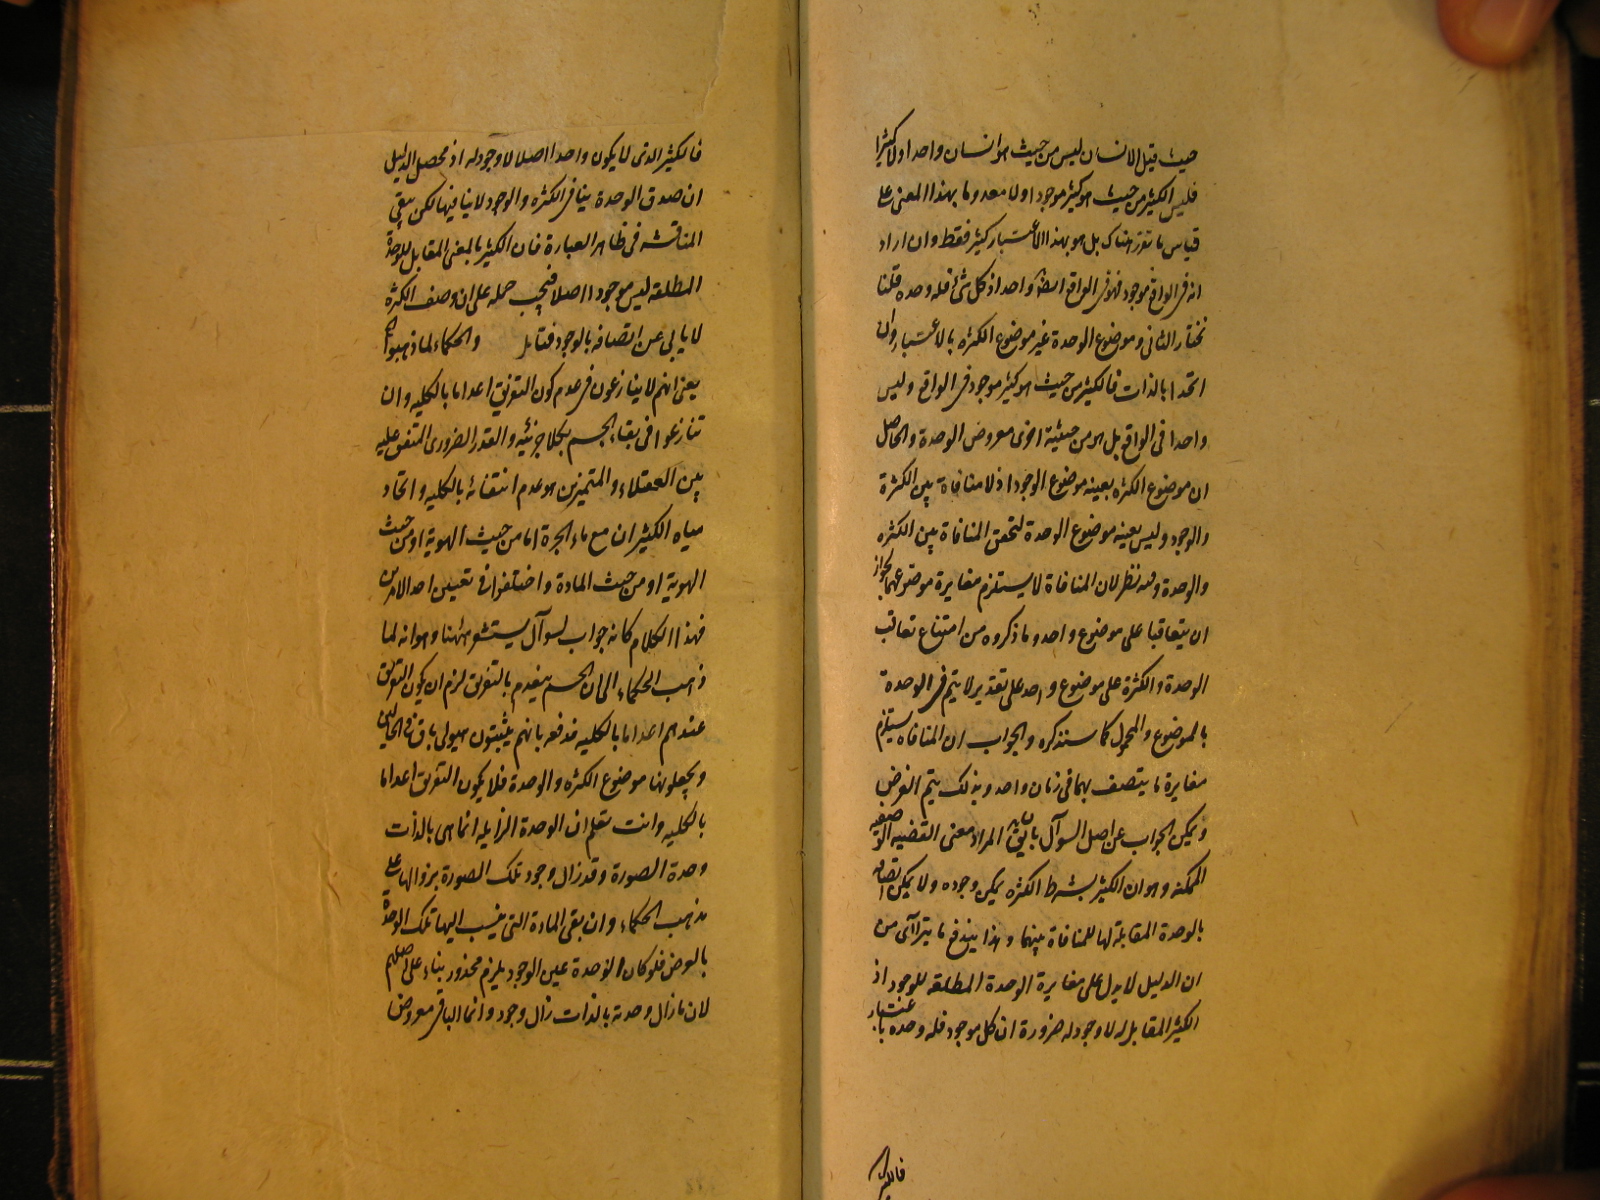 حيث قيل الانسان ليس من حيث هو انسان واحدا ولا كثيرا
فليس الكثير من حيث هو كثير موجودا ولا معدوما بهذا المعنى على
قياس ما تقرر هناك بل هو بهذا الاعتبار كثير فقط وان اراد
انه في الواقع موجود فهو في الواقع ايضا واحد اذ كل شئ فله وحده قلنا
نختار الثانى وموضوع الوحدة غير موضوع الكثره بالاعتبار وان
اتحدا بالذات فالكثير من حيث هو كثير موجود في الواقع وليس
واحدا في الواقع بل هو من حيثية اخرى معروض الوحدة والحاصل
ان موضوع الكثره بعينه موضوع الوجود اذ لا منافاة بين الكثرة
والوجود وليس بعينه موضوع الوحدة لتحقق المنافاة بين الكثره
والوحدة وفيه نظر لان المنافاة لا يستلزم مغايرة موضوعهما لجواز
ان يتعاقبا على موضوع واحد وما ذكروه من امتناع تعاقب
الوحدة والكثرة على موضوع واحد على تقدير لا يتم في الوحدة
بالموضوع والمحمول كما سنذكره والجواب ان المنافاه يستلزم
مغايرة ما يتصف بهما في زمان واحد وبذلك يتم الغرض
ويمكن الجواب عن اصل السوآل بان المراد معنى القضيه الوصفيه
الممكنه وهو ان الكثير بشرط الكثره يمكن وجوده ولا يمكن اتصافه
بالوحدة المقابلة لها للمنافاة بينهما وبهذا يندفع ما يترآآى من
ان الدليل لا يدل على مغايرة الوحدة المطلقه للوجود اذ
الكثير المقابل له لا وجود له ضرورة ان كل موجود فله وحده باعتبار
فالكثير
فالكثير الذى لا يكون واحدا اصلا لا وجود له اذ محصل الدليل
ان صدق الوحدة ينافى الكثره والوجود لا ينافيها لكن يبقى
المناقشه في ظاهر العبارة فان الكثير بالمعنى المقابل للوحدة
المطلقه ليس موجودا اصلا فيجب حمله على ان وصف الكثرة
لا يابى عن اتصافه بالوجود فتامل والحكماء لما ذهبوا الخ
يعنى انهم لا ينازعون في عدم كون التفريق اعداما بالكليه وان
تنازعوا في بقاء الجسم بكلا جزئيه والقدر الضرورى المتفق عليه
بين العقلاء والمتميزين هو عدم انتفائه بالكليه واتحاد
مياه الكثيران مع ماء الجرة اما من حيث الهوية او من حيث
الهوية او من حيث المادة واختلفوا في تعيين احد الامرين
فهذا الكلام كانه جواب لسوآل يستشعر ههنا وهو انه لما
ذهب الحكماء الى ان الجسم ينعدم بالتفريق لزم ان يكون التفريق
عندهم اعداما بالكليه فدفعه بانهم يثبتون هيولى باق في الحالين
ويجعلونها موضوع الكثره والوحدة فلا يكون التفريق اعداما
بالكليه وانت تعلم ان الوحدة الزايله انما هى بالذات
وحدة الصورة وقد زال وجود تلك الصورة بزوالها على
مذهب الحكماء وان بقى المادة التى ينسب اليها تلك الوحدة
بالعرض فلو كان الوحدة عين الوجود يلزم محذور بناء على اصلهم
لان ما زال وحدته بالذات زال وجوده وانما الباقى معروض